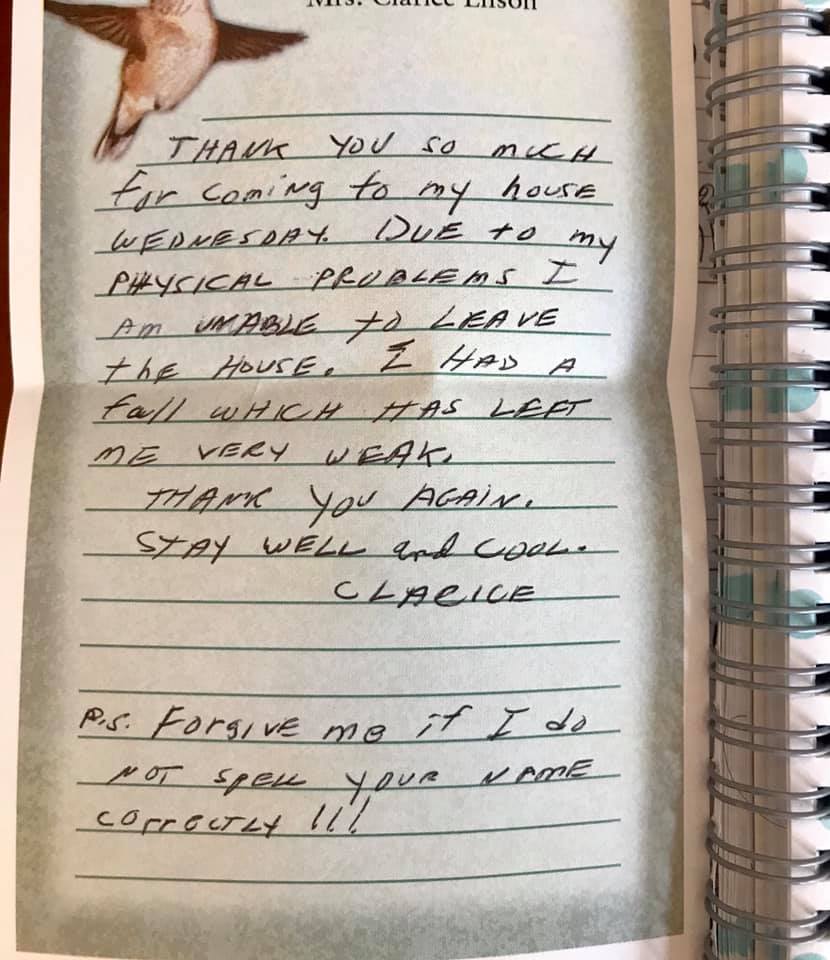 Mrs. Clarice Ellson
THANK YOU SO MUCH
for coming to my house
WEDNESDAY. DUE to my
PHYSICAL PROBLEMS I
Am UNABLE to LEAVE
the HOUSE. I HAD A
fall WHICH HAS LEFT
ME VERY WEAK.
THANK YOU AGAIN.
STAY WELL and COOL.
CLARICE
P.S. Forgive me if I do
NOT SPELL YOUR NAME
correctly !!!